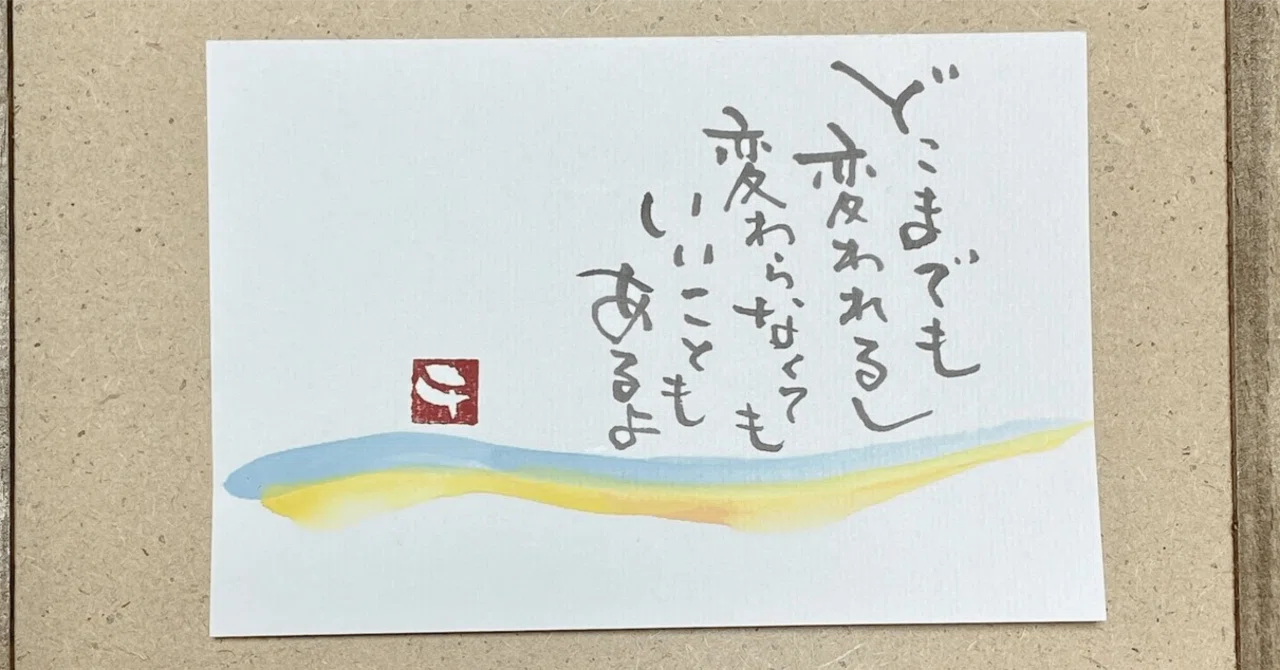 どこまでも
変われるし
変わらなくても
いいことも
あるよ